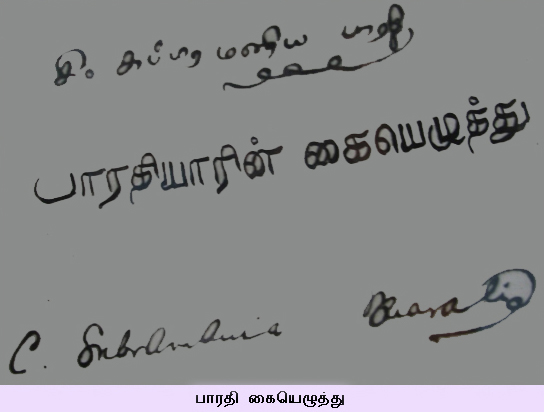 சி. சுப்பிரமணிய பாரதி
பாரதியாரின் கையெழுத்து
C. Subramania Bharati
பாரதி கையெழுத்து